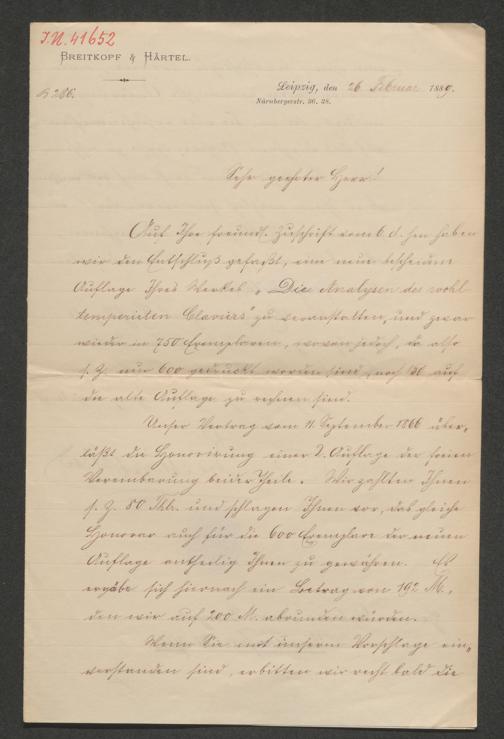 I.N. 41652
BREITKOPF & HÄRTEL.
Leipzig, den 26 Februar 1889.
Nürnbergerstr. 36. 38.
Sehr geehrter Herr!
Auf Ihre freundl. Zuschrift vom 6. d. haben
wir den Entschluß gefaßt, eine neue
Auflage Ihres Werkes „Die Analysen des wohl-
temperirten Claviers" zu veranstalten, und zwar
wieder in 750 Exemplaren, wovon jedoch, da also
s. Z. nur 600 gedruckt worden sind, noch 150 auf
die alte Auflage zu rechnen sind.
Unser Vertrag vom 11. September 1866 über-
läßt die Honorirung einer 2. Auflage der freien
Vereinbarung beider Theile. Wir zahlten Ihnen
s. Z. 80 Thlr. und schlagen Ihnen vor, das gleiche
Honorar auch für die 600 Exemplare der neuen
Auflage antheilig Ihnen zu gewähren. Es
ergäbe sich hiernach ein Betrag von 192 M.,
den wir auf 200 M. abrunden würden.
Wenn Sie mit unserm Vorschlage ein-
verstanden sind, erbitten wir recht bald die